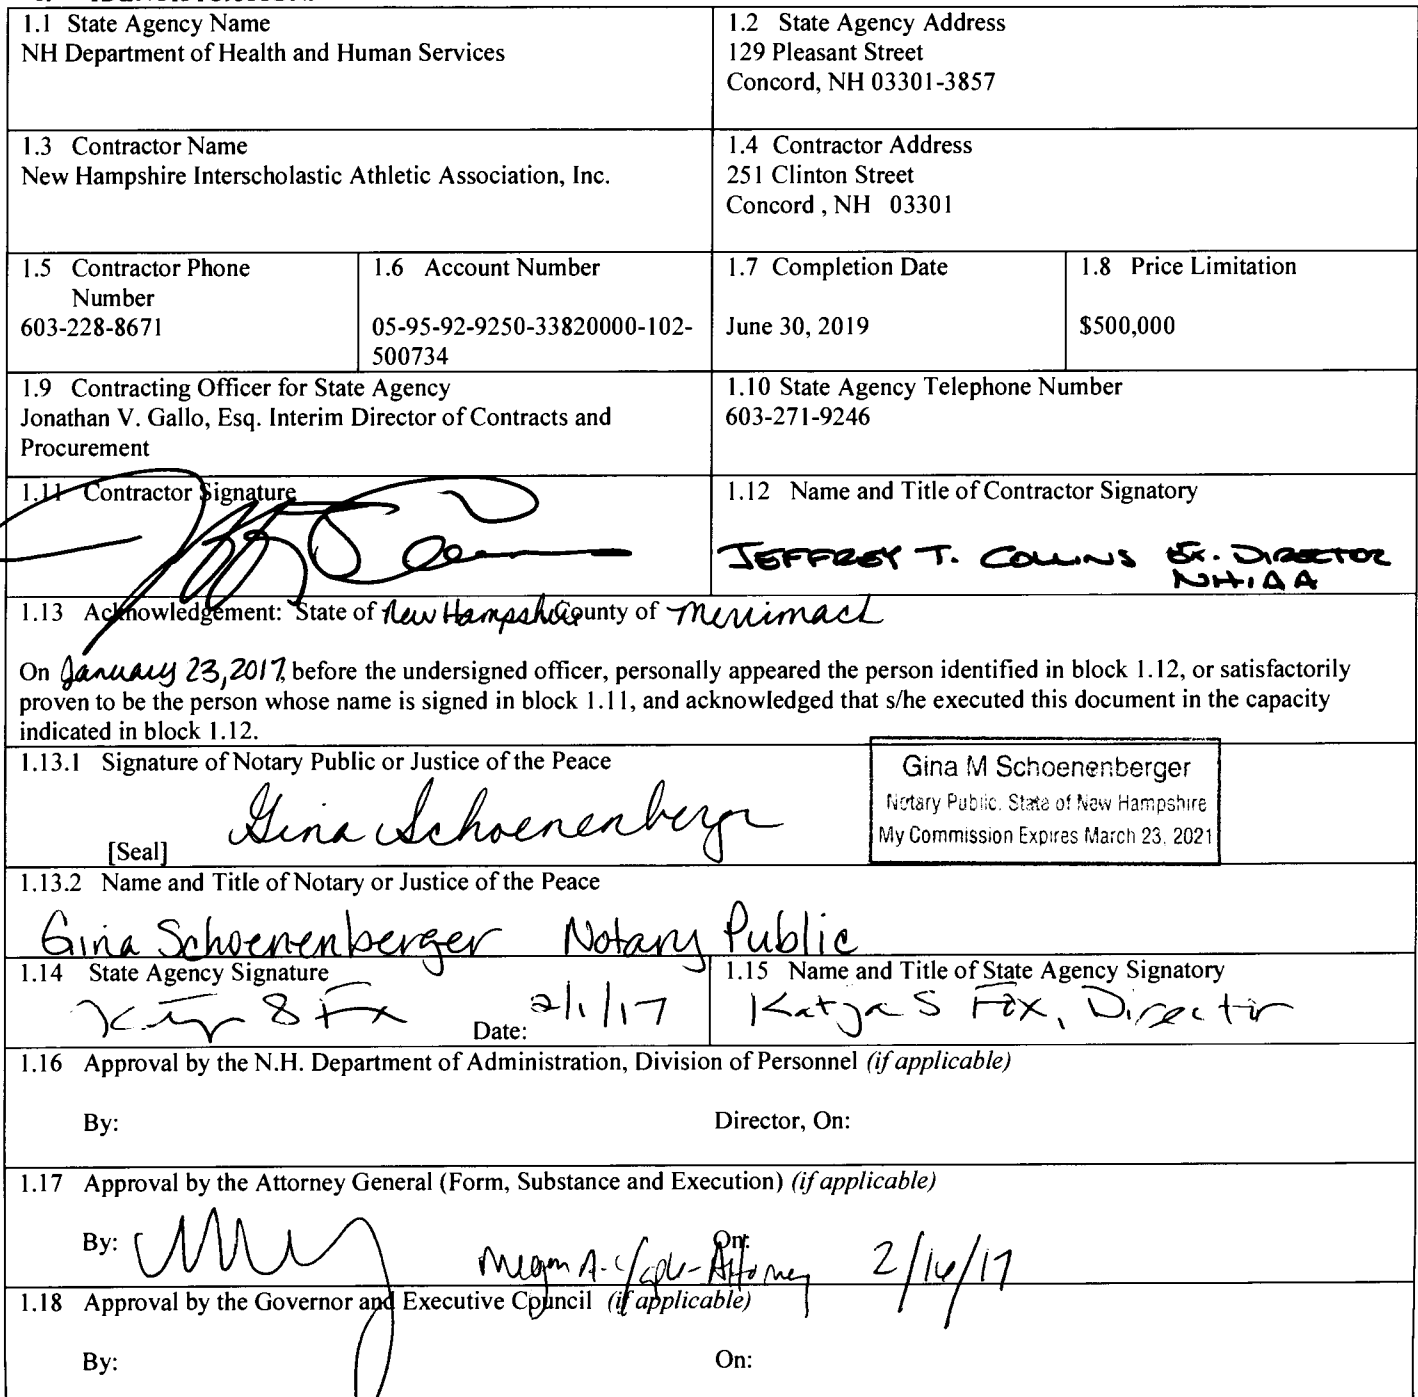 1.1 State Agency Name
NH Department of Health and Human Services
1.2 State Agency Address
129 Pleasant Street
Concord, NH 03301-3857
1.3 Contractor Name
New Hampshire Interscholastic Athletic Association, Inc.
1.4 Contractor Address
251 Clinton Street
Concord , NH 03301
1.5 Contractor Phone
Number
603-228-8671
1.6 Account Number
05-95-92-9250-33820000-102-
500734
1.7 Completion Date
June 30, 2019
1.8 Price Limitation
$500,000
1.9 Contracting Officer for State Agency
Jonathan V. Gallo, Esq. Interim Director of Contracts and
Procurement
1.10 State Agency Telephone Number
603-271-9246
1.11 Contractor Signature
1.12 Name and Title of Contractor Signatory
JEFFREY T. COLLINS EX. DIRECTOR
NHIAA
1.13 Acknowledgement: State of New Hampshire County of Merrimack
On January 23, 2017, before the undersigned officer, personally appeared the person identified in block 1.12, or satisfactorily
proven to be the person whose name is signed in block 1.11, and acknowledged that s/he executed this document in the capacity
indicated in block 1.12.
1.13.1 Signature of Notary Public or Justice of the Peace
Gina Schoenenberger
[Seal]
Gina M Schoenenberger
Notary Public, State of New Hampshire
My Commission Expires March 23, 2021
1.13.2 Name and Title of Notary or Justice of the Peace
Gina Schoenenberger Notary Public
1.14 State Agency Signature
Date: 2/1/17
1.15 Name and Title of State Agency Signatory
Katja S Fox, Director
1.16 Approval by the N.H. Department of Administration, Division of Personnel (if applicable)
By:
Director, On:
1.17 Approval by the Attorney General (Form, Substance and Execution) (if applicable)
By:
On:
Megan A. - Attorney 2/16/17
1.18 Approval by the Governor and Executive Council (if applicable)
By:
On: